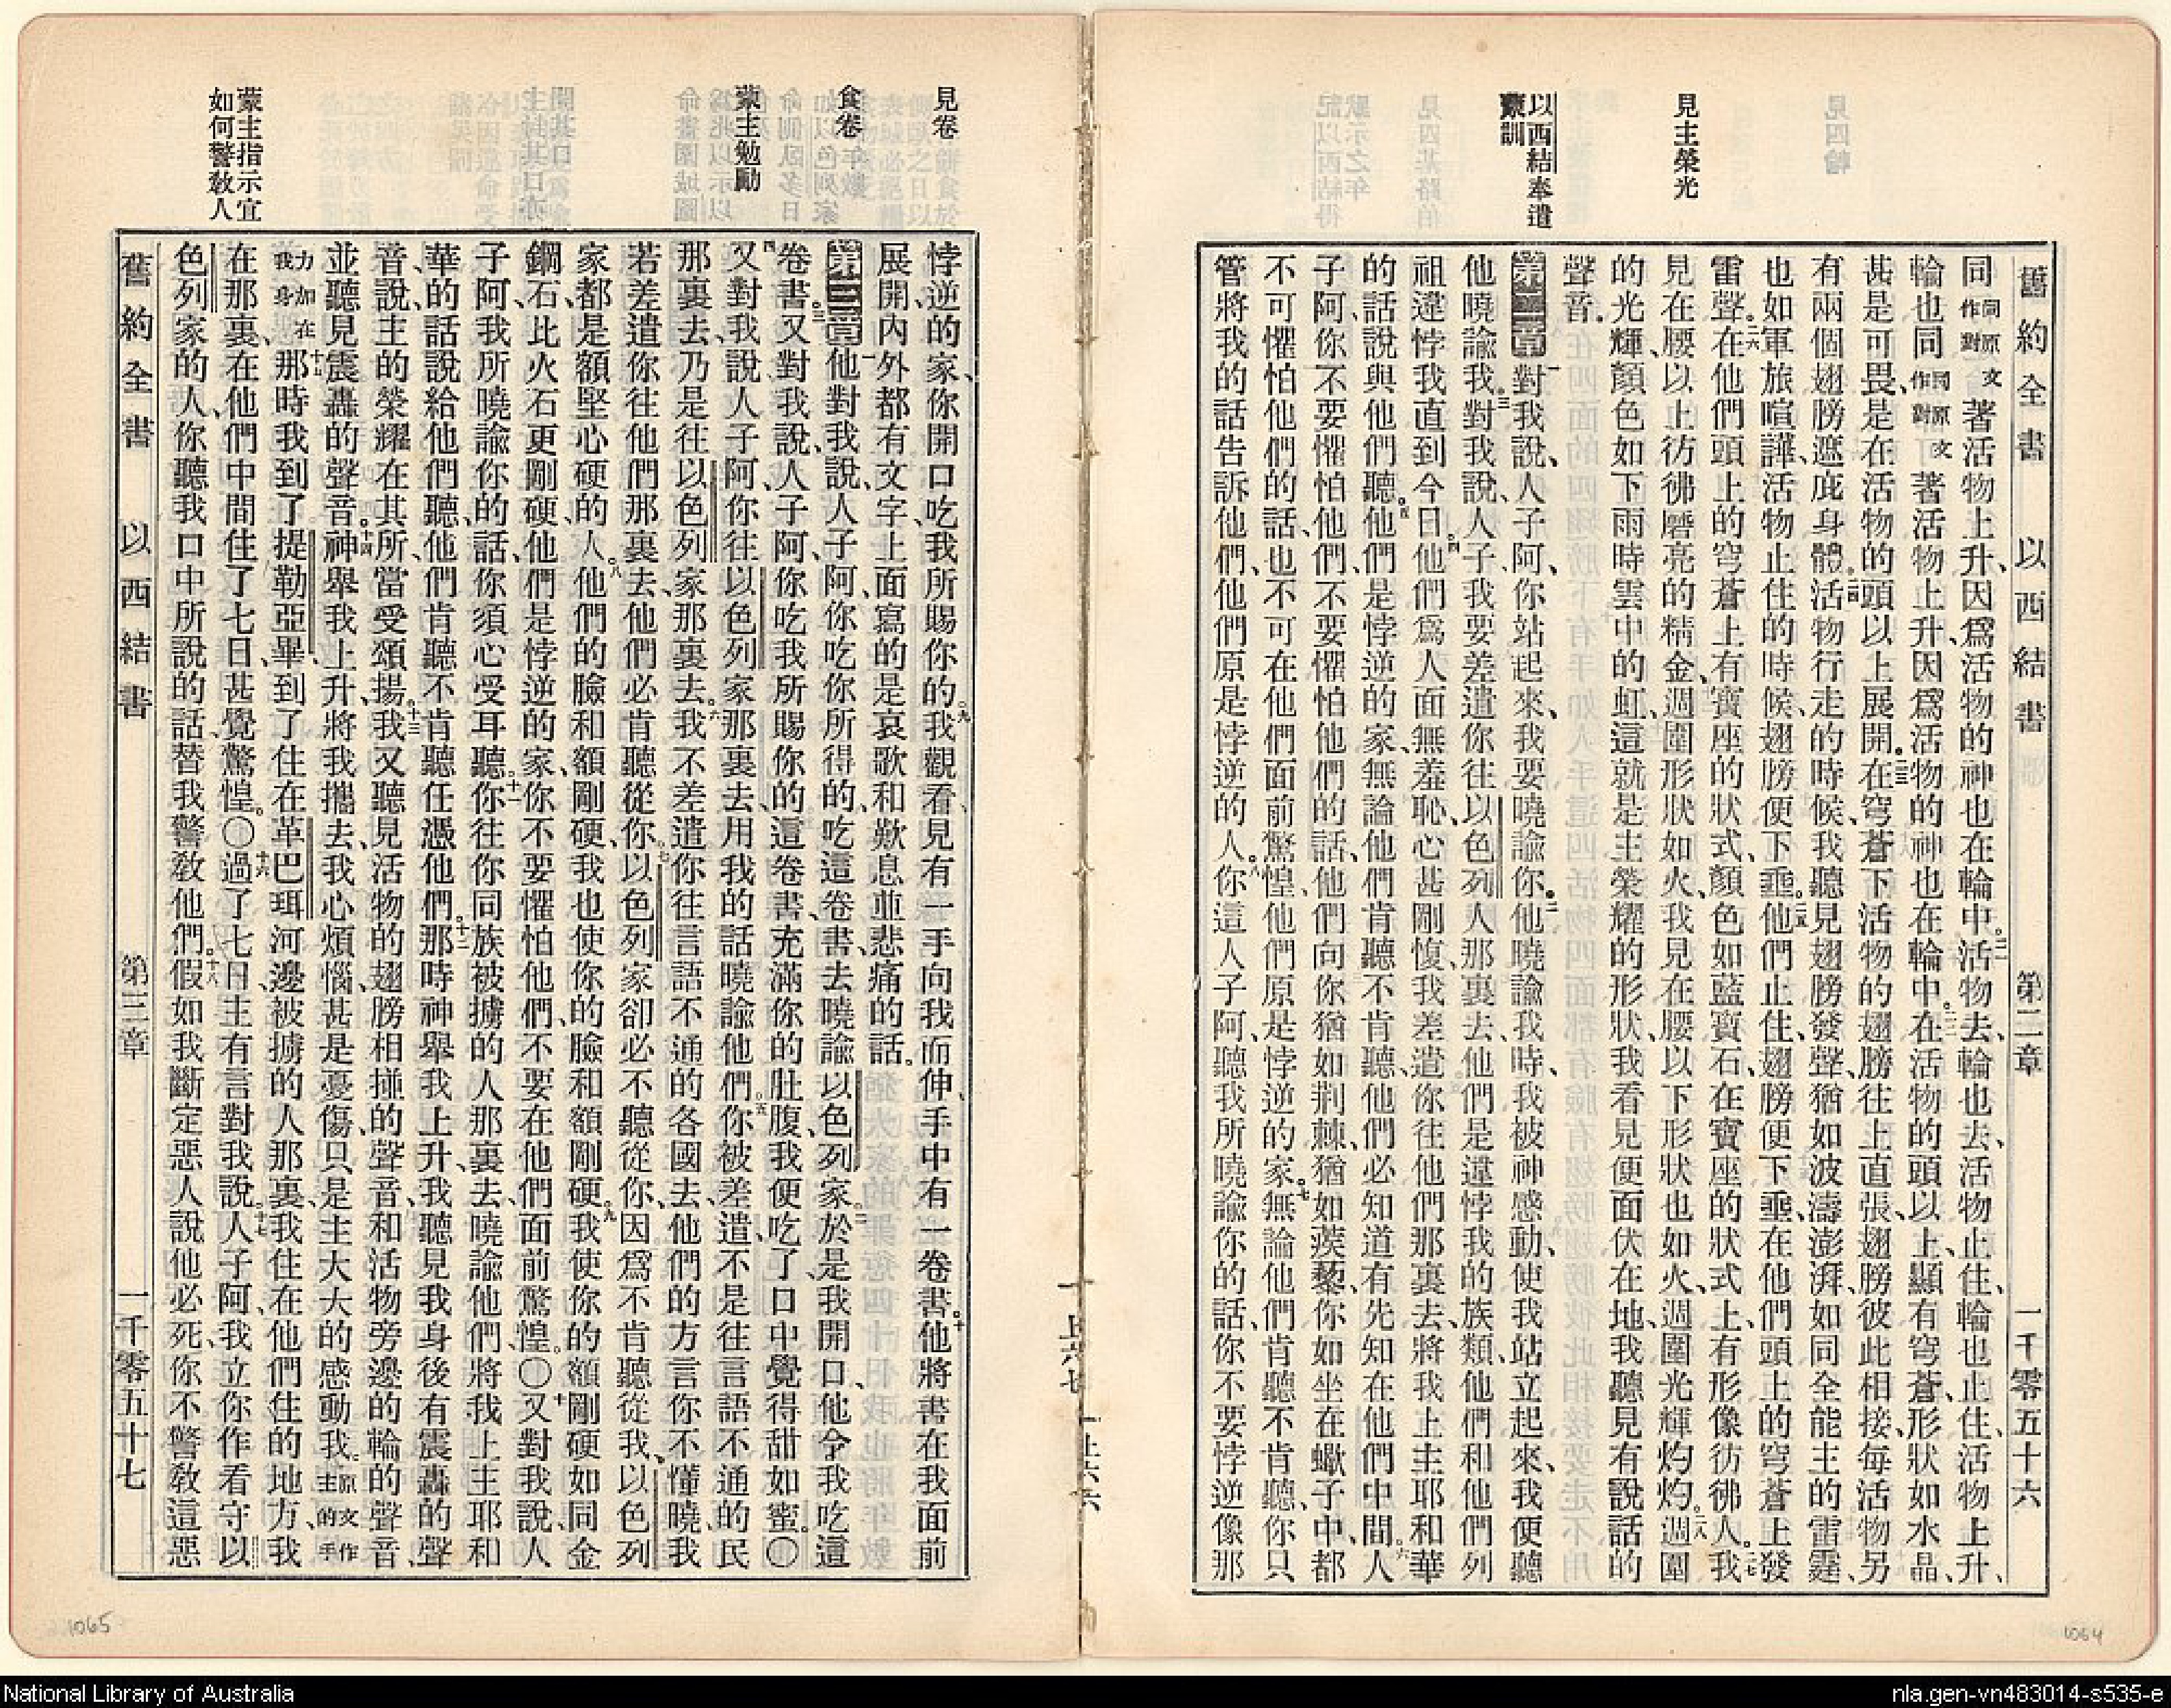 舊約全書 以西結書 第二章 一千零五十六
見主榮光
以西結奉遣
蒙訓
同同原文作對著活物上升、因爲活物的神也在輪中。二一活物去、輪也去、活物止住、輪也止住、活物上升、
輪也同同原文作對著活物上升、因爲活物的神也在輪中。二二在活物的頭以上、顯有穹蒼、形狀如水晶、
甚是可畏、是在活物的頭以上展開。二三在穹蒼下活物的翅膀往上直張、翅膀彼此相接、每活物另
有兩個翅膀遮庇身體。二四活物行走的時候、我聽見翅膀發聲、猶如波濤澎湃、如同全能主的雷霆、
也如軍旅喧譁、活物止住的時候、翅膀便下垂。二五他們止住、翅膀便下垂、在他們頭上的穹蒼上發
雷聲。二六在他們頭上的穹蒼上有寶座的狀式、顏色如藍寶石、在寶座的狀式上有形像彷彿人。二七我
見在腰以上彷彿磨亮的精金、週圍形狀如火、我見在腰以下形狀也如火、週圍光輝灼灼。二八週圍
的光輝、顏色如下雨時雲中的虹、這就是主榮耀的形狀、我看見便面伏在地、我聽見有說話的
聲音。
第二章一對我說、人子阿、你站起來、我要曉諭你。二他曉諭我時、我被神感動、使我站立起來、我便聽
他曉諭我。三對我說、人子、我要差遣你往以色列人那裏去、他們是違悖我的族類、他們和他們列
祖違悖我直到今日。四他們爲人面無羞恥、心甚剛愎、我差遣你往他們那裏去、將我上主耶和華
的話說與他們聽。五他們是悖逆的家、無論他們肯聽不肯聽、他們必知道有先知在他們中間。六人
子阿、你不要懼怕他們、不要懼怕他們的話、他們向你猶如荆棘、猶如蒺藜、你如坐在蠍子中、都
不可懼怕他們的話、也不可在他們面前驚惶、他們原是悖逆的家。七無論他們肯聽不肯聽、你只
管將我的話告訴他們、他們原是悖逆的人。八你這人子阿、聽我所曉諭你的話、你不要悖逆像那
見卷
食卷
蒙主勉勵
蒙主指示宜
如何警敎人
悖逆的家、你開口吃我所賜你的。九我觀看、見有一手向我而伸、手中有一卷書。十他將書在我面前
展開、內外都有文字、上面寫的是哀歌和歎息並悲痛的話。
第三章一他對我說、人子阿、你吃你所得的、吃這卷書、去曉諭以色列家。二於是我開口、他令我吃這
卷書。三又對我說、人子阿、你吃我所賜你的這卷書、充滿你的肚腹、我便吃了、口中覺得甜如蜜。〇
四又對我說、人子阿、你往以色列家那裏去、用我的話曉諭他們。五你被差遣、不是往言語不通的民
那裏去、乃是往以色列家那裏去。六我不差遣你往言語不通的各國去、他們的方言你不懂曉、我
若差遣你往他們那裏去、他們必肯聽從你。七以色列家卻必不聽從你、因爲不肯聽從我、以色列
家都是額堅心硬的人。八他們的臉和額剛硬、我也使你的臉和額剛硬。九我使你的額剛硬如同金
鋼石、比火石更剛硬、他們是悖逆的家、你不要懼怕他們、不要在他們面前驚惶。〇十又對我說、人
子阿、我所曉諭你的話、你須心受耳聽。十一你往你同族被擄的人那裏去、曉諭他們、將我上主耶和
華的話說給他們聽、他們肯聽不肯聽、任憑他們。十二那時神舉我上升、我聽見我身後有震轟的聲
音說、主的榮耀在其所、當受頌揚。十三我又聽見活物的翅膀相掽的聲音、和活物旁邊的輪的聲音、
並聽見震轟的聲音。十四神舉我上升、將我攜去、我心煩惱、甚是憂傷、只是主大大的感動我。原文作主的手
力加在我身十五那時我到了提勒亞畢、到了住在革巴珥河邊被擄的人那裏、我住在他們住的地方、我
在那裏、在他們中間住了七日、甚覺驚惶。〇十六過了七日、主有言對我說。十七人子阿、我立你作看守以
色列家的人、你聽我口中所說的話、替我警敎他們。十八假如我斷定惡人說他必死、你不警敎這惡
舊約全書 以西結書 第三章 一千零五十七
1065
1064
National Library of Australia
nla.gen-vn483014-s535-e